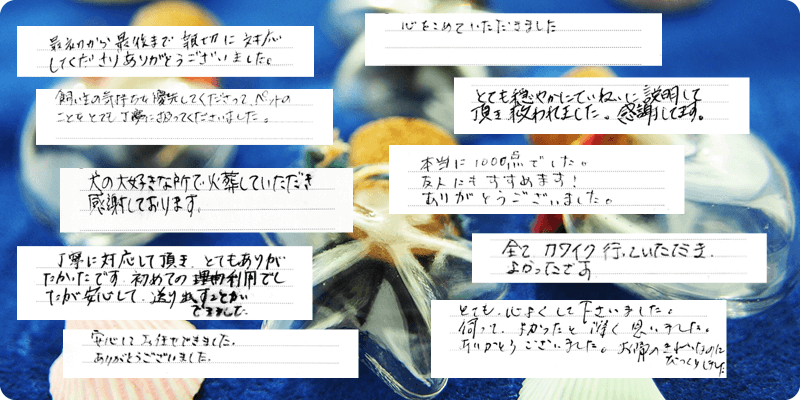 最初から最後まで親切に対応
してくださりありがとうございました。
飼い主の気持ちを優先してくださって、ペットの
こともとても丁寧に扱ってくださいました。
犬の大好きな所で火葬していただき
感謝しております。
丁寧に対応して頂き、とてもありが
たかったです 初めての 利用でし
たが安心して、送り出すことが
できました
安心してお任せできました。
ありがとうございました。
心をこめていただきました
とても穏やかにていねいに説明して
頂き救われました。感謝してます。
本当に1000点でした。
友人にもすすめます!
ありがとうございました。
全て カワイク 行っていただき
よかったです
とても、心よくして下さいました。
伺って、よかったと深く思いました。
ありがとうございました。お骨のきれいなのに
びっくりしました